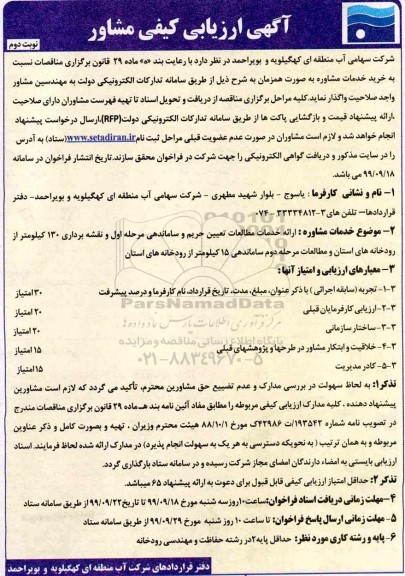 آگهی ارزیابی کیفی مشاور
نوبت دوم
شرکت سهامی آب منطقه ای کهگیلویه و بویراحمد در نظر دارد با رعایت بند «ه» ماده ۲۹ قانون برگزاری مناقصات نسبت
به خرید خدمات مشاوره به صورت همزمان به شرح ذیل از طریق سامانه تدارکات الکترونیکی دولت به مهندسین مشاور
واجد صلاحیت واگذار نماید.کلیه مراحل برگزاری مناقصه از دریافت و تحویل اسناد تا تهیه فهرست مشاوران دارای صلاحیت
،ارائه پیشنهاد قیمت و بازگشایی پاکت ها از طریق سامانه تدارکات الکترونیکی دولت(RFP)،ارسال درخواست پیشنهاد
انجام خواهد شد و لازم است مشاوران در صورت عدم عضویت قبلی مراحل ثبت نام www.setadiran.ir(ستاد) به آدرس
را در سایت مذکور و دریافت گواهی الکترونیکی را جهت شرکت در فراخوان محقق سازند.تاریخ انتشار فراخوان در سامانه
۹۹/۰۹/۱۸ می باشد.
۱- نام و نشانی کارفرما : یاسوج - بلوار شهید مطهری - شرکت سهامی آب منطقه ای کهگیلویه و بویراحمد- دفتر
قراردادها- تلفن های ۳-۳۳۳۳۴۸۱۲-۰۷۴
۲- موضوع خدمات مشاوره : ارائه خدمات مطالعات تعیین حریم و ساماندهی مرحله اول و نقشه برداری ۱۳۰ کیلومتر از
رودخانه های استان و مطالعات مرحله دوم ساماندهی ۱۵ کیلومتر از رودخانه های استان
۳- معیارهای ارزیابی و امتیاز آنها :
۳-۱- تجربه (سابقه اجرائی ) با ذکر عنوان، مبلغ، مدت، تاریخ قرارداد، نام کارفرما و درصد پیشرفت ۳۰ امتیاز
۳-۲- ارزیابی کارفرمایان قبلی ۲۰ امتیاز
۳-۳- ساختار سازمانی ۲۰ امتیاز
۳-۴- خلاقیت و ابتکار مشاور در طرحها و پژوهشهای قبلی ۱۵ امتیاز
۳-۵- کادر مدیریت ۱۵ امتیاز
تذکر۱: به لحاظ سهولت در بررسی مدارک و عدم تضییع حق مشاورین محترم، تأکید می گردد که لازم است مشاورین
پیشنهاد دهنده ، کلیه مدارک ارزیابی کیفی مربوطه را مطابق مفاد آئین نامه بند هـ ماده ۲۹ قانون برگزاری مناقصات مندرج
در تصویب نامه شماره ۱۹۳۵۴۲/ت ۴۲۹۸۶ک مورخ ۸۸/۱۰/۱ هیئت محترم وزیران ، تهیه و بصورت کامل و ذکر عناوین
مربوطه و به همان ترتیب ( به نحویکه دسترسی به هر یک به سهولت انجام پذیرد) در مدارک ارائه شده لحاظ فرمایند. اسناد
ارزیابی بایستی به امضاء دارندگان امضای مجاز شرکت رسیده و در سامانه ستاد بارگذاری گردد.
تذکر۲: حداقل امتیاز ارزیابی کیفی قابل قبول برای دعوت به ارائه پیشنهاد ۶۵ میباشد.
۴-مهلت زمانی دریافت اسناد فراخوان:ساعت ۱۰روزسه شنبه مورخ ۹۹/۰۹/۱۸ تا تاریخ ۹۹/۰۹/۲۲از طریق سامانه ستاد
۵-مهلت زمانی ارسال پاسخ فراخوان: تا ساعت ۱۰ روز شنبه مورخ ۹۹/۰۹/۲۹ از طریق سامانه ستاد
۶-پایه و رشته کاری مورد نظر: حداقل پایه۲در رشته حفاظت و مهندسی رودخانه
دفتر قراردادهای شرکت آب منطقه ای کهگیلویه و بویراحمد
ParsNamadData
۰۲۱-۸۸۳۴۹۶۷۰-۵